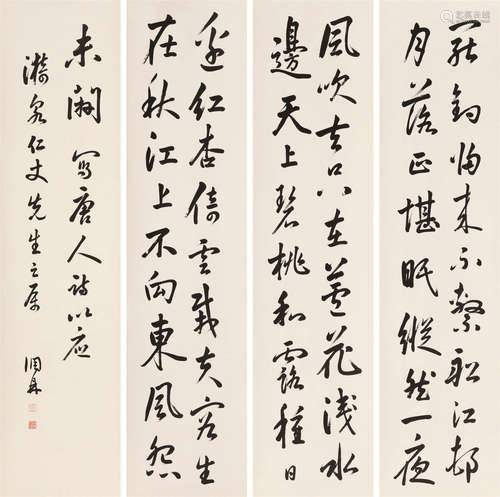 罷釣歸來不繫船江邨
月落正堪眠縱然一夜
風吹去只在蘆花淺水
邊天上碧桃和露種日
邊紅杏倚雲栽芙蓉生
在秋江上不向東風怨
未開 寫唐人詩以應
漪泉仁丈先生之屬